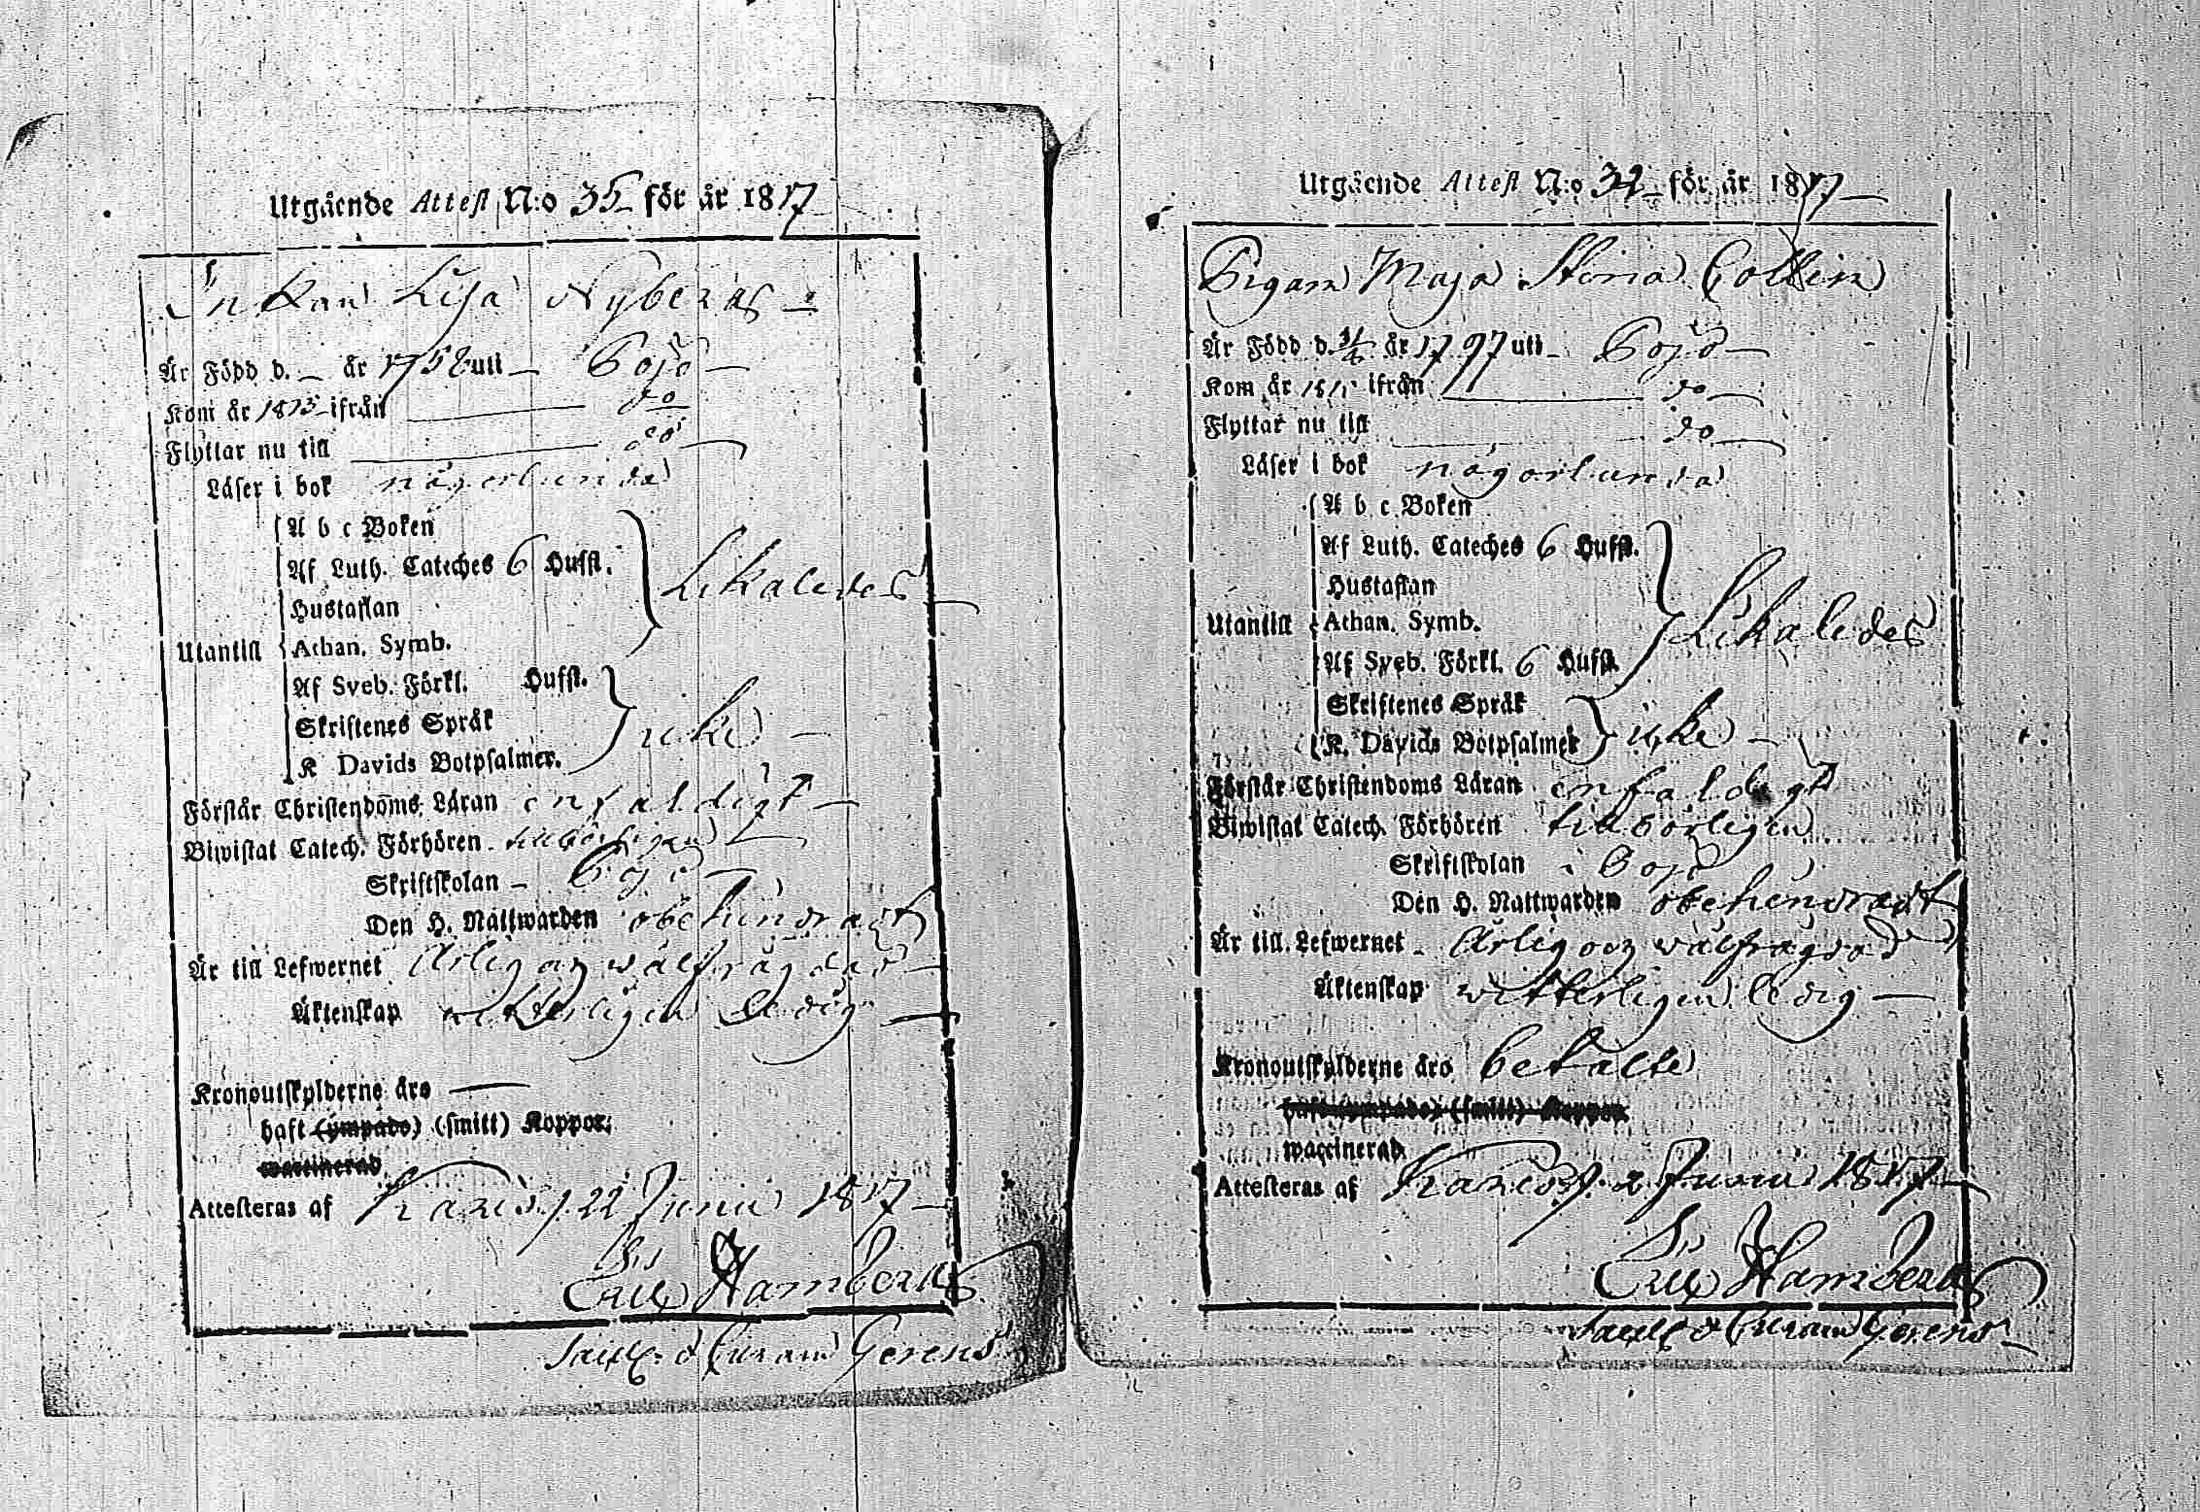 Utgående Attest N:o 35 för år 1817
Enkan Lisa Nyberg
Är Född d. — år 1758 uti Pojo
Kom år 1813 ifrån do
Flyttar nu till do
Läser i bok någorlunda
A b c Boken
Af Luth. Cateches 6 Hufst.
Hustaflan
Likaledes
Utantill Athan. Symb.
Af Sveb. Förkl. Hufst.
Skriftenes Språk
icke
K Davids Botpsalmer.
Förstår Christendoms Läran enfaldigt
Biwistat Catech. Förhören tillbörligen
Skriftskolan — Pojo
Den H. Nattwarden obehindradt
Är till Lefwernet Ärlig och wälfrägdad
Äktenskap witterligen ledig
Kronoutskylderne äro —
haft (ympade) (smitt) Koppor.
waccinerad
Attesteras af Karis d. 22 Junii 1817
Eric Hamberg
Sacell. o Curam Gerens
Utgående Attest N:o 34 för år 1817
Pigan Maja Stina Collin
Är Född d. år 1797 uti Pojo
Kom år 1811 ifrån do
Flyttar nu till do
Läser i bok någorlunda
A b c Boken
Af Luth. Cateches 6 Hufst.
Hustaflan
Utantill Athan. Symb.
Likaledes
Af Sveb. Förkl. 6 Hufst.
Skriftenes Språk
K. Davids Botpsalmer icke
Förstår Christendoms Läran enfaldigt
Biwistat Catech. Förhören tillbörligen
Skriftskolan i Pojo
Den H. Nattwarden obehindradt
Är till Lefwernet Ärlig och wälfrägdad
Äktenskap witterligen ledig
Kronoutskylderne äro betalte
haft (ympade) (smitt) Koppor
waccinerad
Attesteras af Karis d. 2 Junii 1817
Eric Hamberg
Sacell. o Curam Gerens